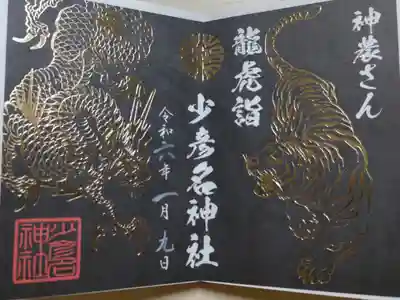 神農さん
龍虎詣
少彦名神社
令和六年一月九日
少名彦
神社